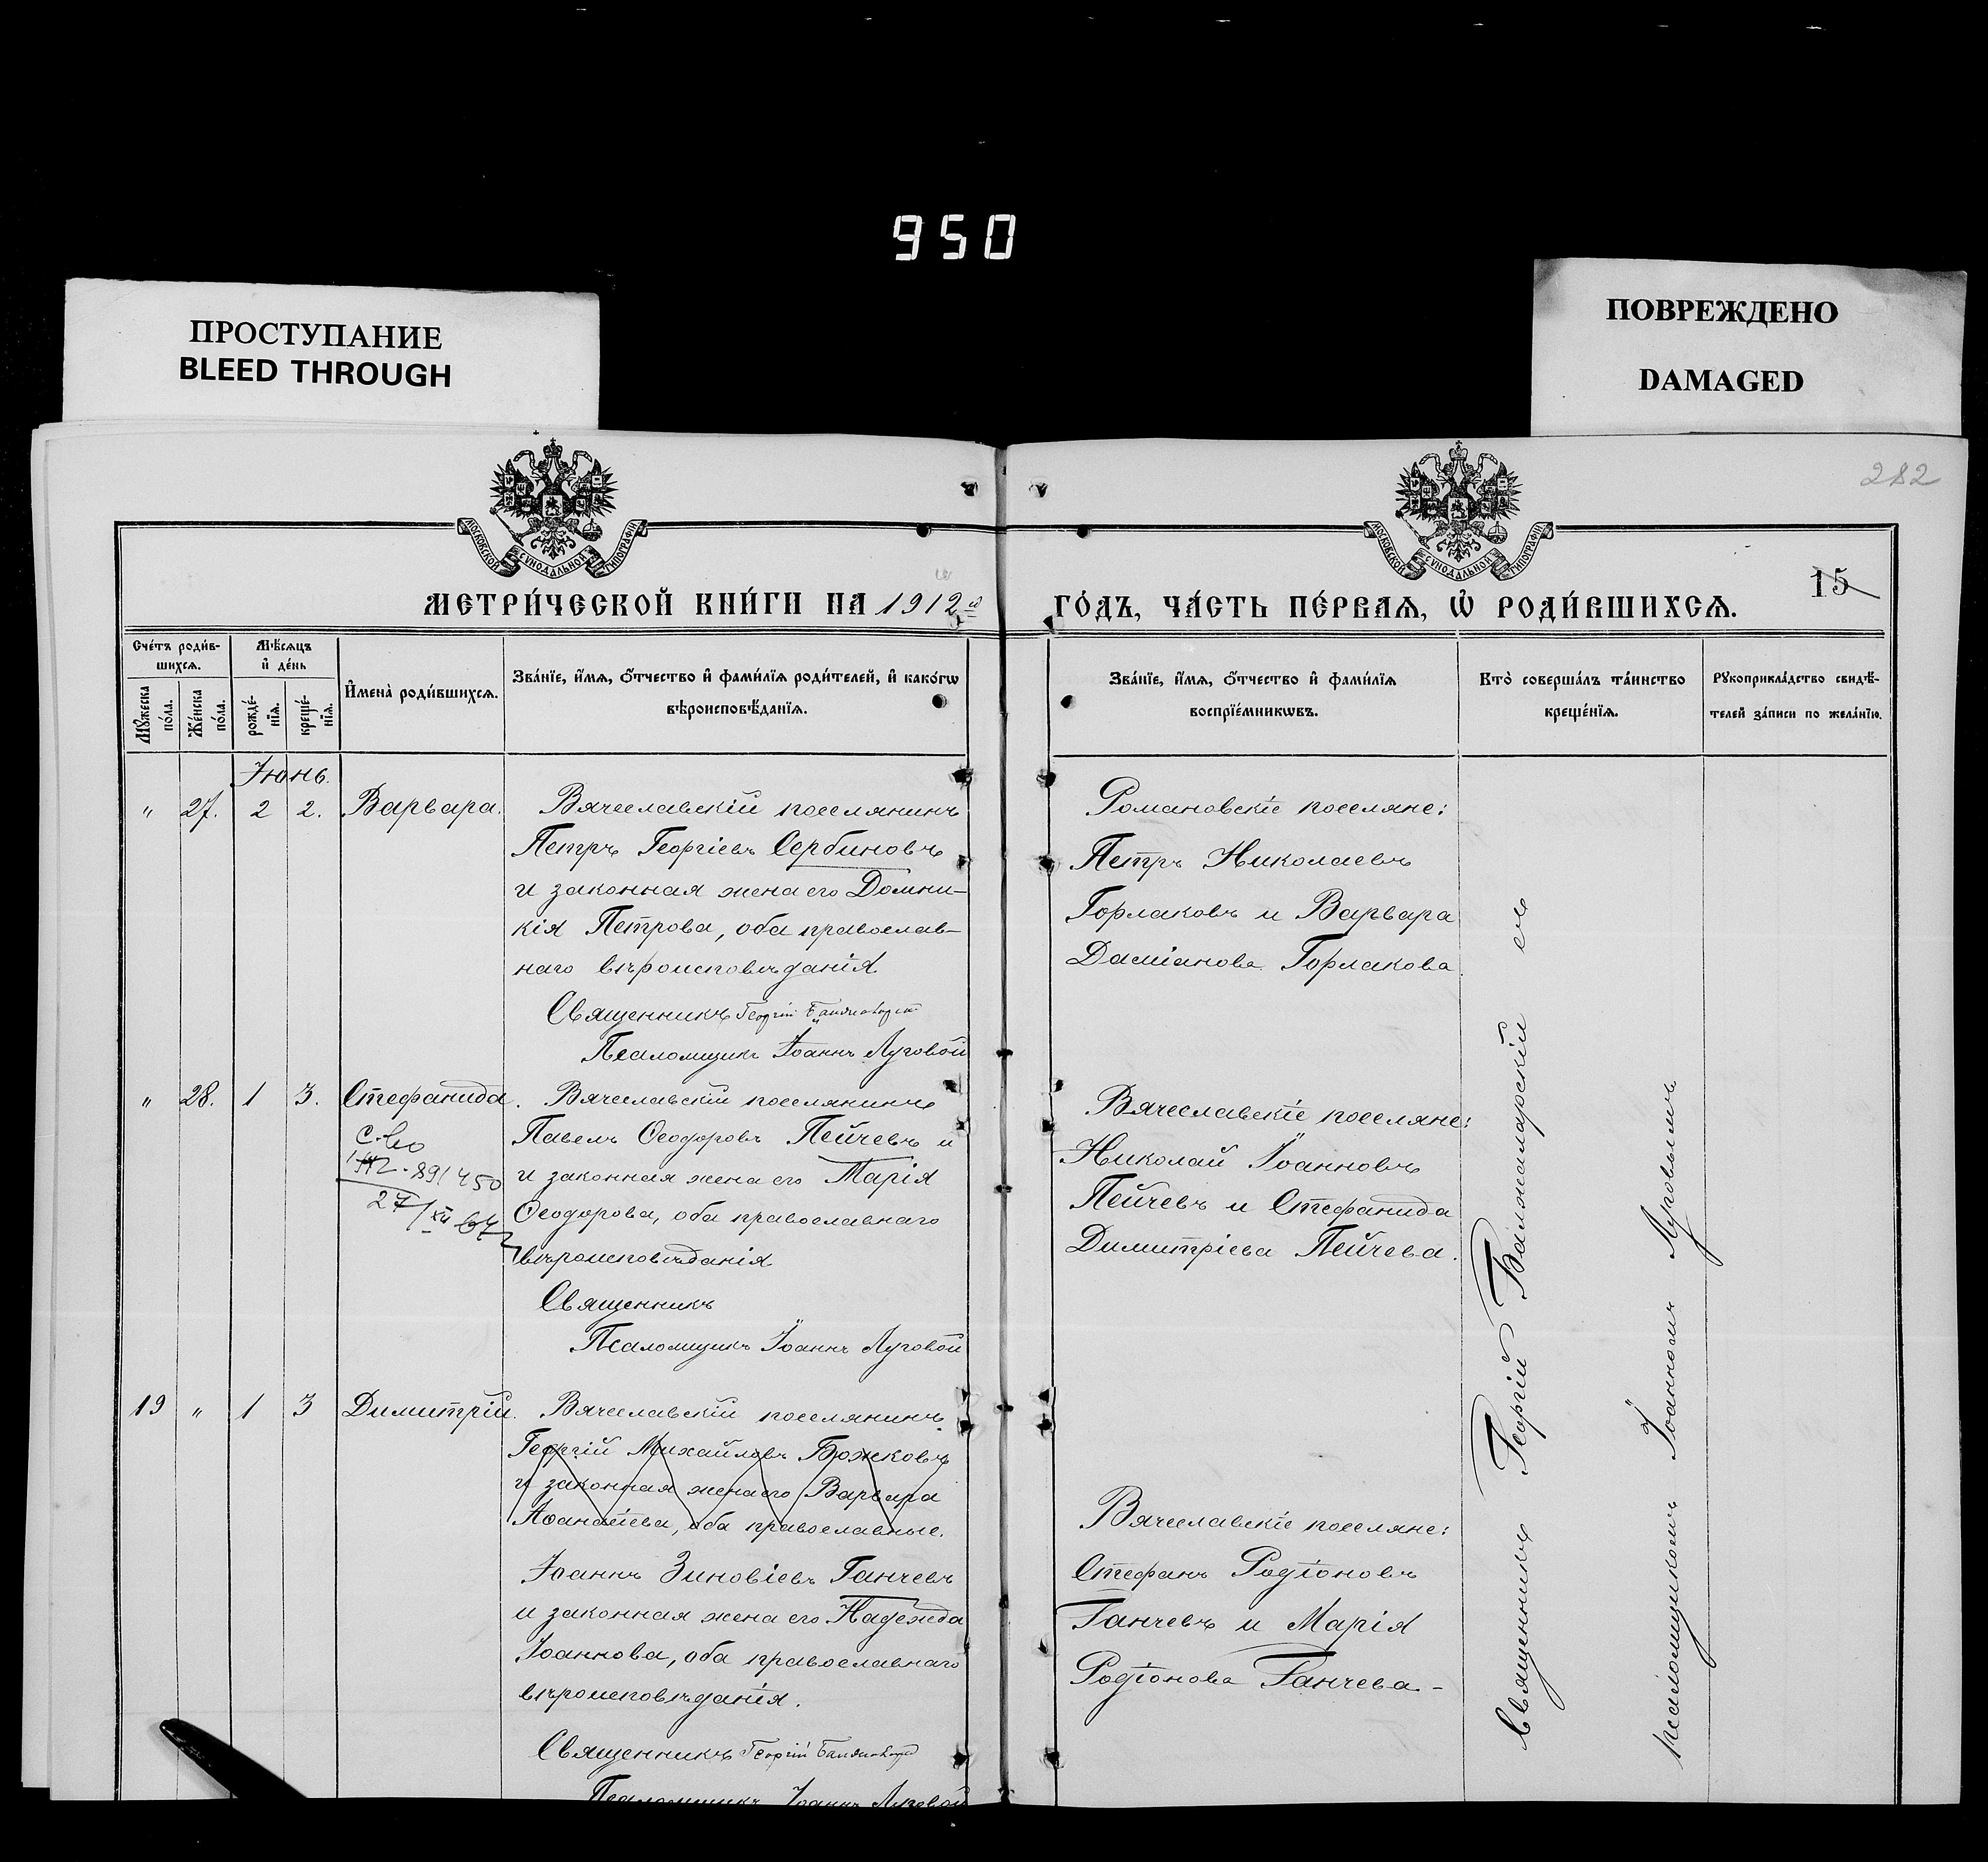 950
ПРОСТУПАНИЕ
BLEED THROUGH
ПОВРЕЖДЕНО
DAMAGED
282
МОСКОВСКОЙ СѴНОДАЛЬНОЙ ТИПОГРАФІИ
МОСКОВСКОЙ СѴНОДАЛЬНОЙ ТИПОГРАФІИ
15
МЕТРИ́ЧЕСКОЙ КНИ́ГИ НА 1912й ГО́ДЪ, ЧА́СТЬ ПЕ́РВАѦ, Ѡ҆ РОДИ́ВШИХСѦ.
Сче́тъ роди́в-
шихсѧ.
Мꙋ́жеска по́ла.
Же́нска по́ла.
Мѣ́сѧцъ
и҆ де́нь
рожде́-
нїѧ.
креще́-
нїѧ.
И҆мена̀ роди́вшихсѧ.
Зва́нїе, и҆́мѧ, ѻ҆́тчество и҆ фами́лїѧ роди́телей, и҆ како́гѡ
вѣроисповѣ́данїѧ.
Зва́нїе, и҆́мѧ, ѻ҆́тчество и҆ фами́лїѧ
воспрїе́мникѡвъ.
Кто̀ соверша́лъ та́инство
креще́нїѧ.
Рꙋкоприкла́дство свидѣ́-
телей за́писи по жела́нїю.
Іюнь.
" 27. 2 2. Варвара. Вячеславскій поселянинъ
Петръ Георгіевъ Сербиновъ
и законная жена его Домни-
кія Петрова, оба православ-
наго вѣроисповѣданія
Священникъ Георгій
Псаломщикъ Іоаннъ Луговой
Романовскіе поселяне:
Петръ Николаевъ
Горлаковъ и Варвара
Даміанова Горлакова.
" 28. 1 3. Стефанида. Вячеславскій поселянинъ
Павелъ Ѳеодоровъ Пейчевъ и
и законная жена его Марія
Ѳеодорова, оба православнаго
вѣроисповѣданія
Священникъ
Псаломщикъ Іоаннъ Луговой
с-во
27/XII
Вячеславскіе поселяне:
Николай Іоанновъ
Пейчевъ и Стефанида
Димитріева Пейчева.
19 " 1 3 Димитрій. Вячеславскій поселянинъ
Георгій Михайловъ Божковъ
и законная жена его Варвара
Аѳанасіева, оба православные.
Іоаннъ Зиновіевъ Ганчевъ
и законная жена его Надежда
Іоаннова, оба православнаго
вѣроисповѣданія.
Священникъ Георгій
Псаломщикъ Іоаннъ Луговой
Вячеславскіе поселяне:
Стефанъ Родіоновъ
Ганчевъ и Марія
Родіонова Ганчева-
Священникъ Георгій съ
псаломщикомъ Іоанномъ Луговымъ